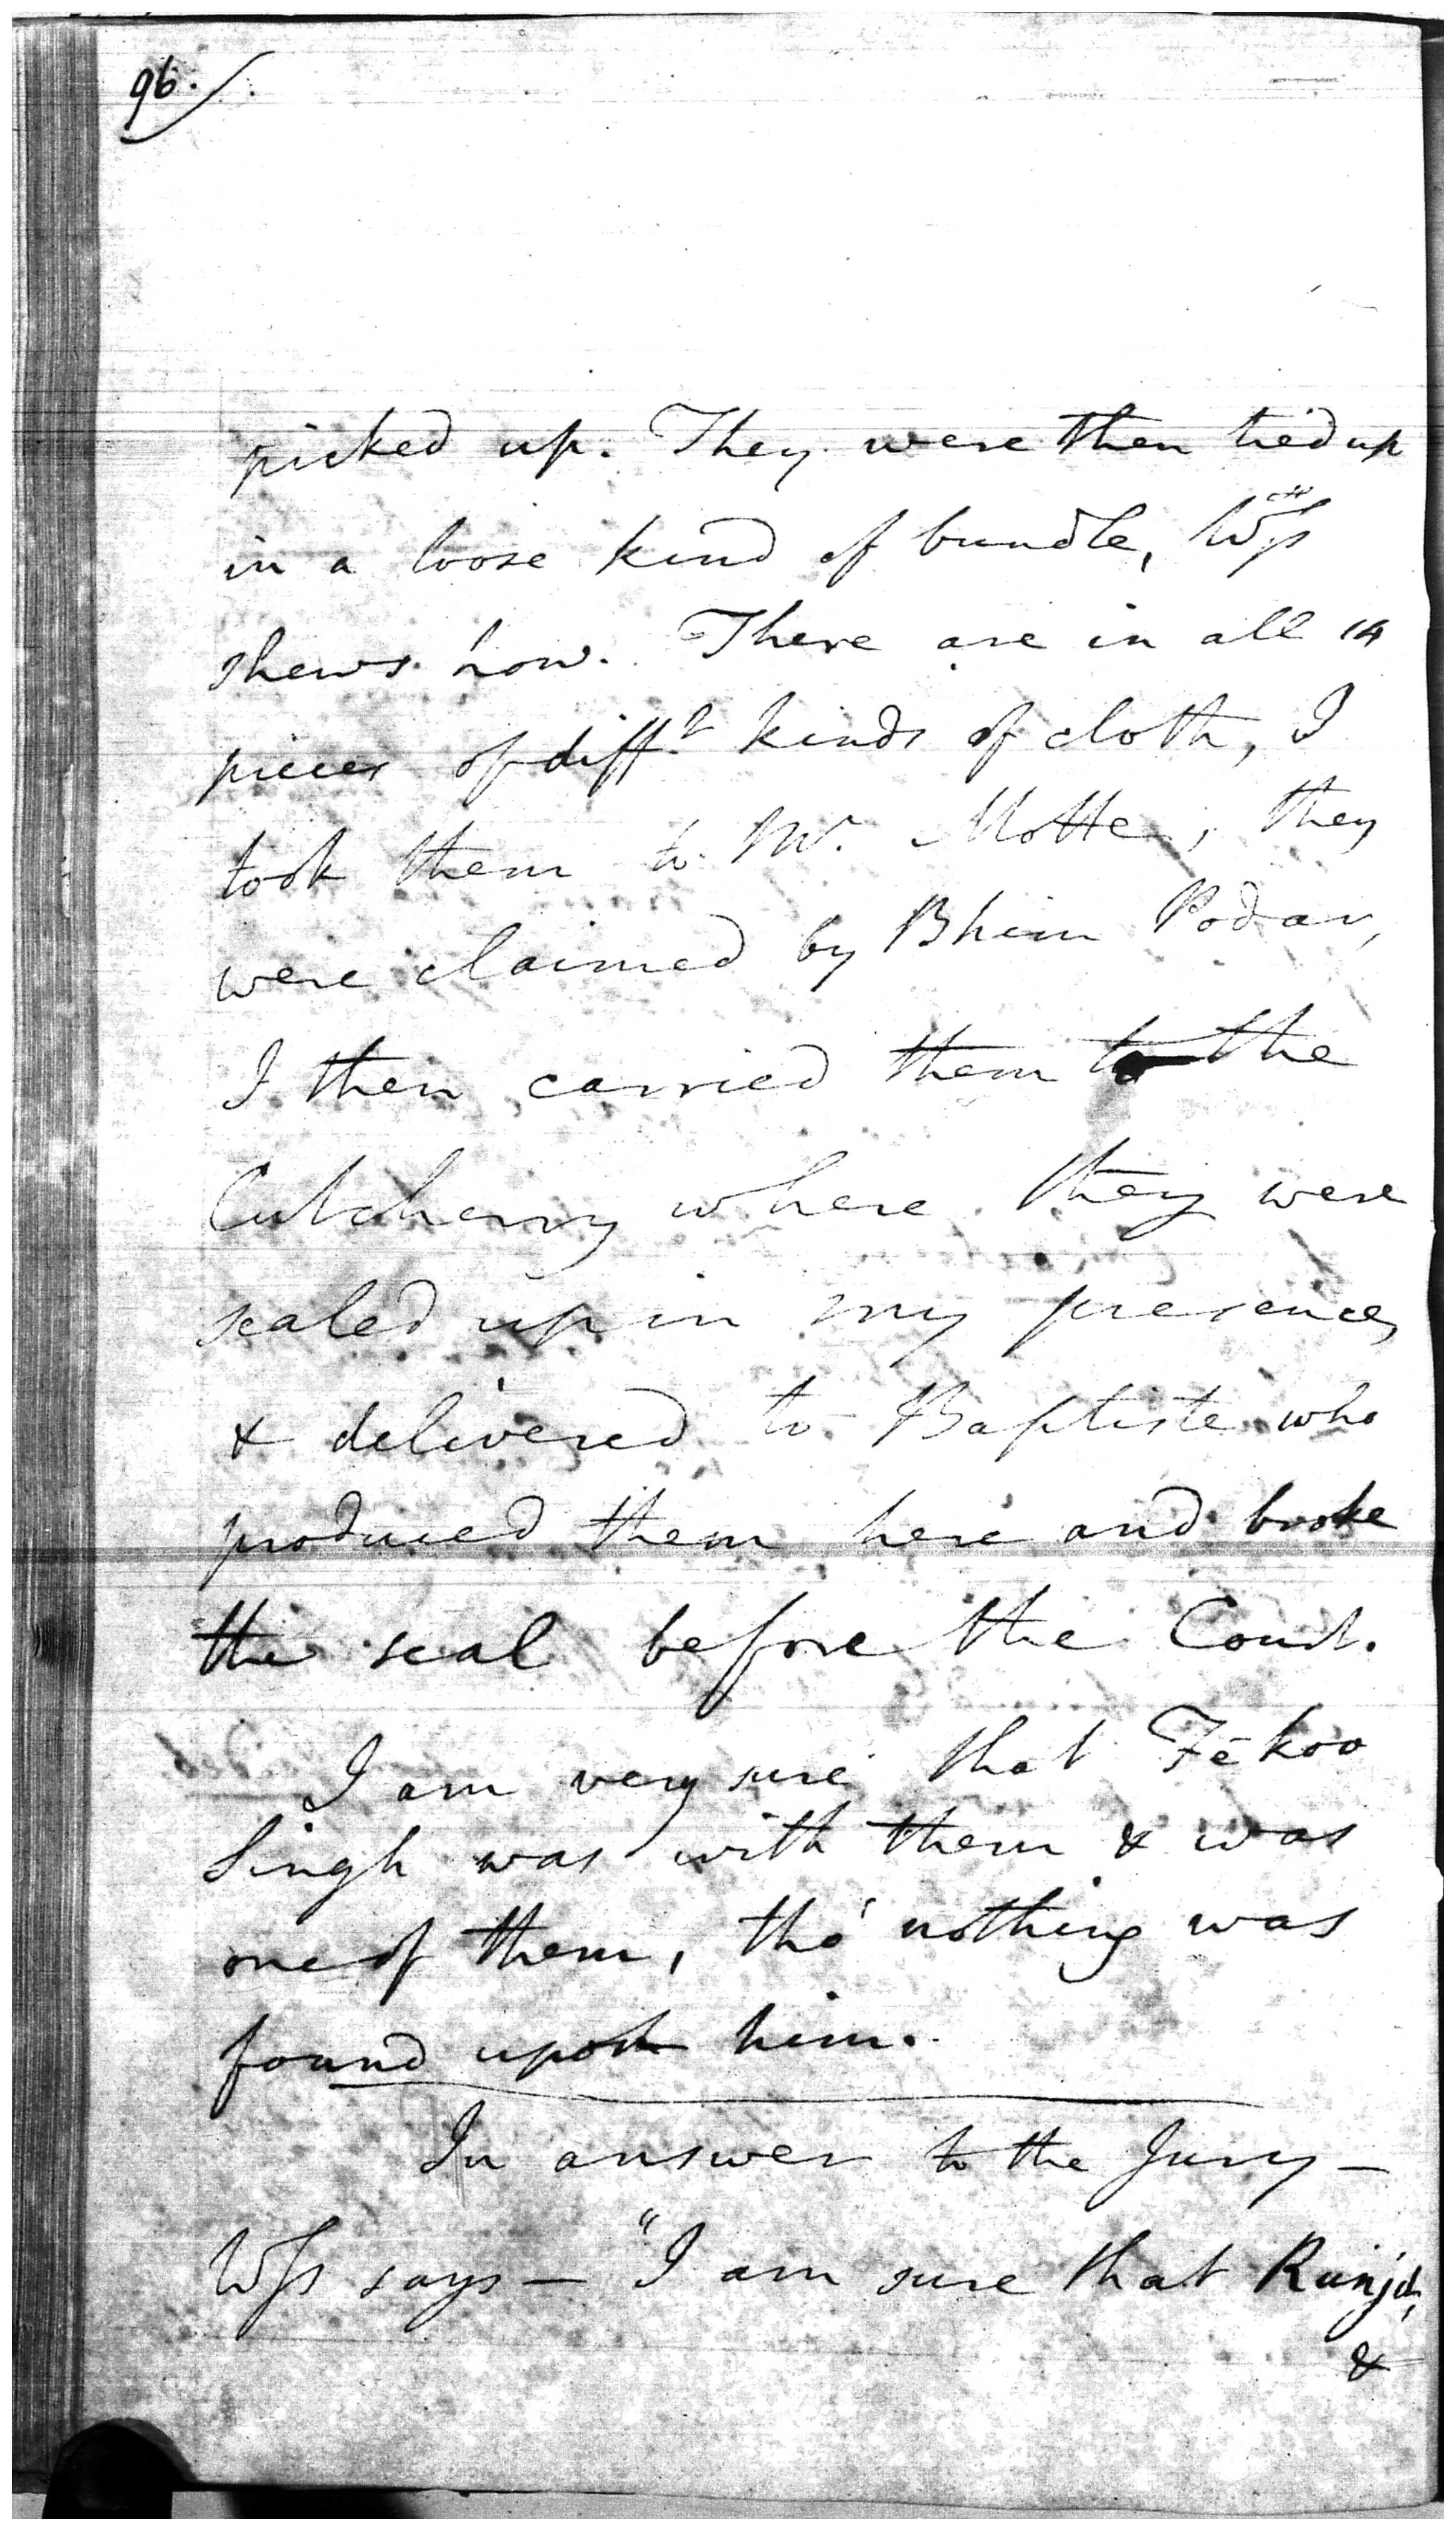 96.
picked up. They were then tied up
in a loose kind of bundle, Wss
shews how. There are in all 14
pieces of diff.t kinds of cloth, I
took them to Mr. Motte, they
were claimed by Bhim Podar,
I then carried them to the
Cutcherry where they were
sealed up in my presence,
& delivered to Baptiste who
produced them here and broke
the seal before the Court.
I am very sure that Fekoo
Singh was with them & was
one of them, tho' nothing was
found upon him.
In answer to the Jury —
Wss says — "I am sure that Runjd,
&